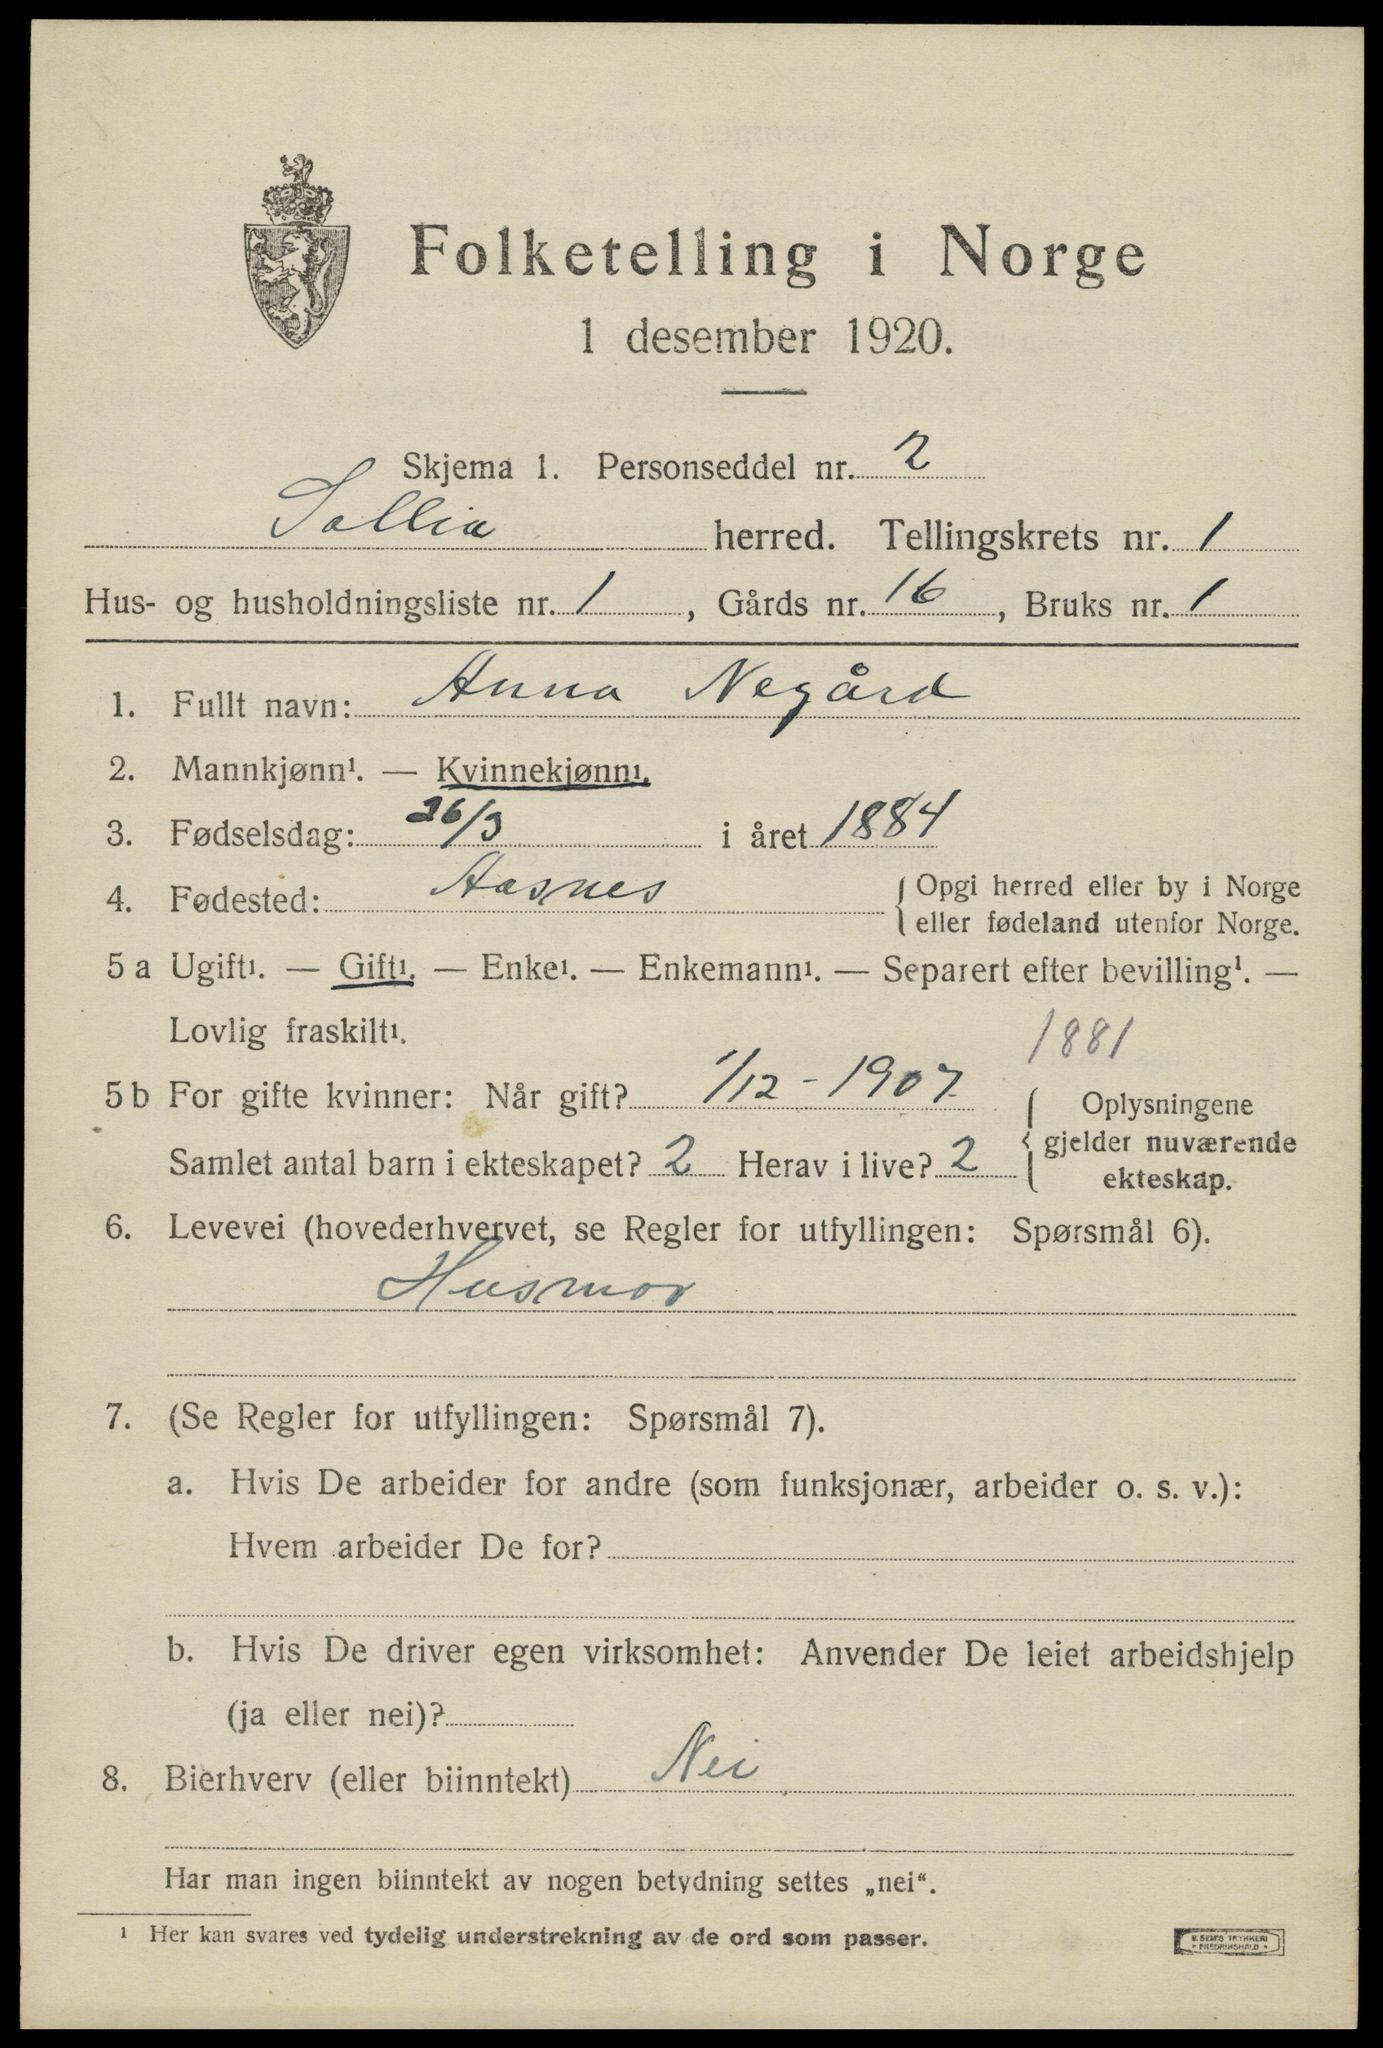 Folketelling i Norge
1 desember 1920.
Skjema 1. Personseddel nr. 2
Sollia herred. Tellingskrets nr. 1
Hus- og husholdningsliste nr. 1, Gårds nr. 16, Bruks nr. 1
1. Fullt navn: Anna Negård
2. Mannkjønn¹. — Kvinnekjønn¹.
3. Fødselsdag: 26/3 i året 1884
4. Fødested: Aasnes { Opgi herred eller by i Norge
eller fødeland utenfor Norge.
5 a Ugift¹. — Gift¹. — Enke¹. — Enkemann¹. — Separert efter bevilling¹. —
Lovlig fraskilt¹.
1881
5 b For gifte kvinner: Når gift? 1/12 - 1907 { Oplysningene
gjelder nuværende
Samlet antal barn i ekteskapet? 2 Herav i live? 2 ekteskap.
6. Levevei (hovederhvervet, se Regler for utfyllingen: Spørsmål 6).
Husmor
7. (Se Regler for utfyllingen: Spørsmål 7).
a. Hvis De arbeider for andre (som funksjonær, arbeider o. s. v.):
Hvem arbeider De for?
b. Hvis De driver egen virksomhet: Anvender De leiet arbeidshjelp
(ja eller nei)?
8. Bierhverv (eller biinntekt) Nei
Har man ingen biinntekt av nogen betydning settes „nei“.
¹ Her kan svares ved tydelig understrekning av de ord som passer.
E. SEMS TRYKKERI
FREDRIKSHALD